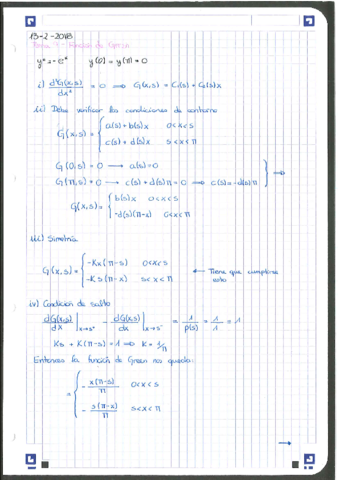 13-2-2018
Tema 4 - Función de Green
y'' = - eˣ y(0) = y(π) = 0
i) d²G(x,s)/dx² = 0 ⟹ G(x,s) = C₁(s) + C₂(s)x
ii) Debe verificar las condiciones de contorno
G(x,s) = { a(s)+b(s)x 0<x<s
c(s)+d(s)x s<x<π
G(0,s) = 0 → a(s)=0
G(π,s) = 0 → c(s)+d(s)π = 0 ⟹ c(s) = -d(s)π
G(x,s) = { b(s)x 0<x<s
-d(s)(π-x) 0<x<π
iii) Simetría
G(x,s) = { -Kx(π-s) 0<x<s
-Ks(π-x) s<x<π
← Tiene que cumplirse esto
iv) Condición de salto
dG(x,s)/dx |x→s⁺ - dG(x,s)/dx |x→s⁻ = 1/p(s) = 1/1 = 1
Ks + K(π-s) = 1 ⟹ K = 1/π
Entonces la función de Green nos queda:
= { - x(π-s)/π 0<x<s
- s(π-x)/π s<x<π